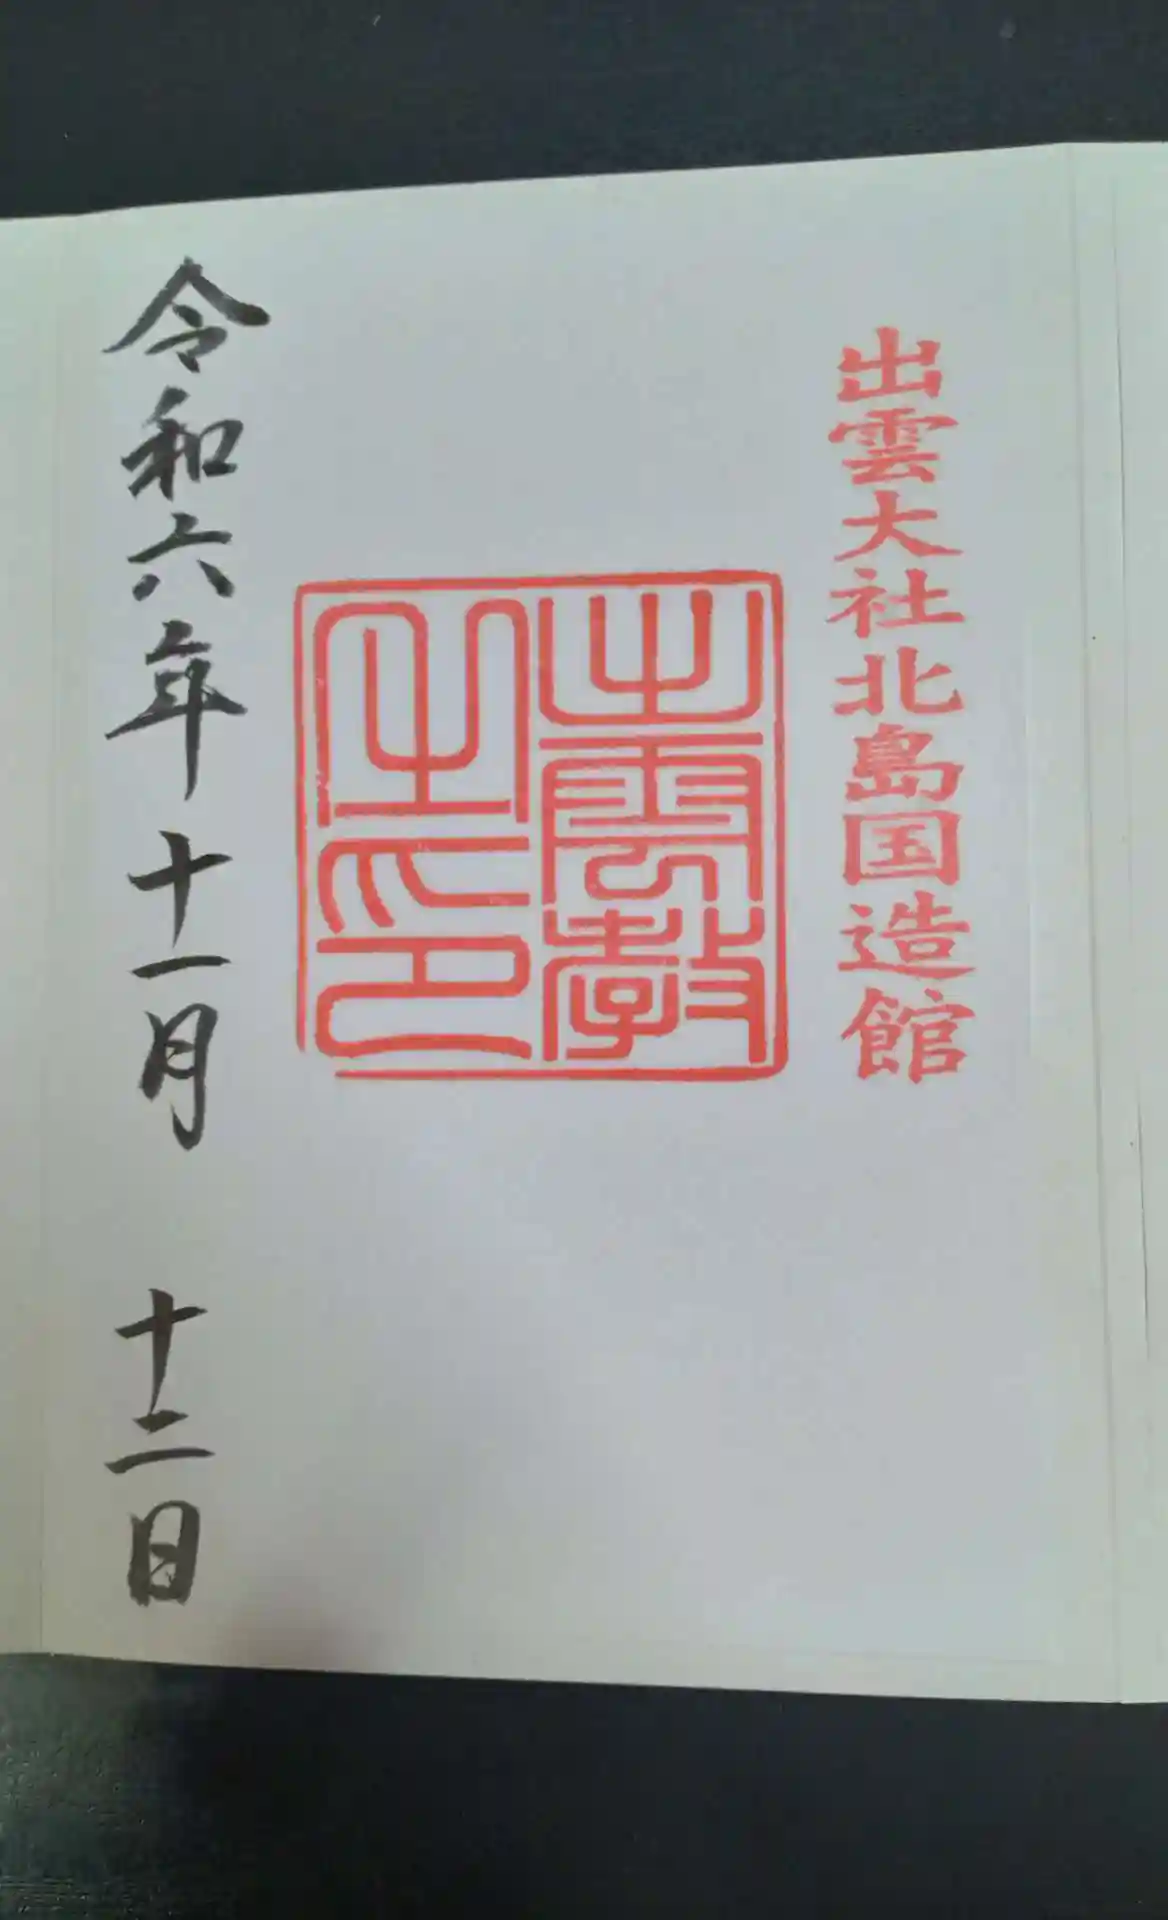 出雲大社北島国造館
出雲教
之印
令和六年十一月十二日